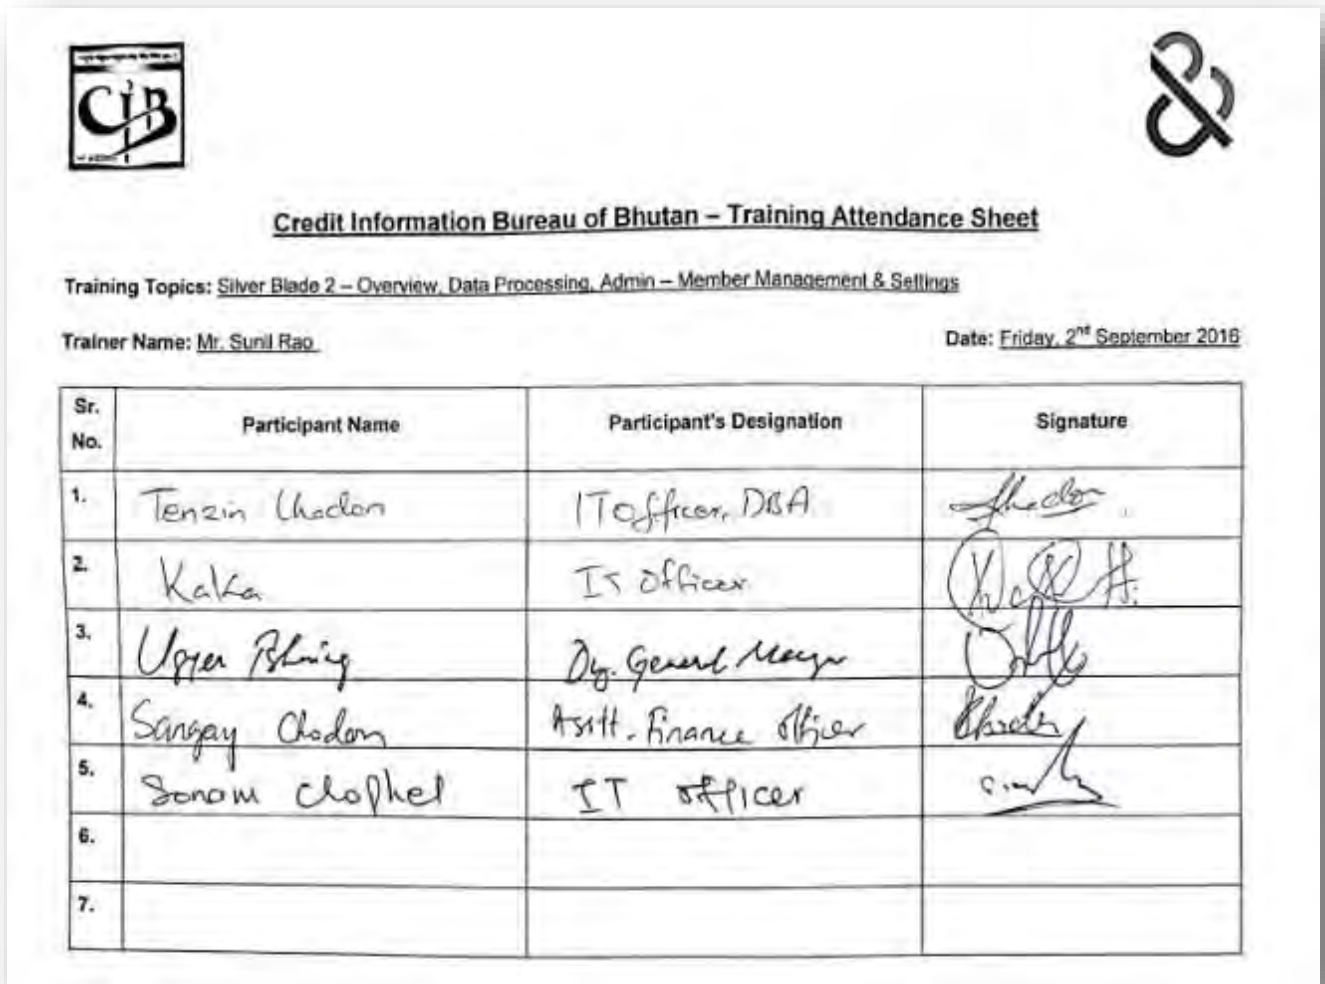 CIB
Credit Information Bureau of Bhutan – Training Attendance Sheet
Training Topics: Silver Blade 2 – Overview, Data Processing, Admin – Member Management & Settings
Trainer Name: Mr. Sunil Rao Date: Friday, 2nd September 2016
Sr. No. Participant Name Participant's Designation Signature
1. Tenzin Chodon IT officer, DBA
2. Kaka IT Officer
3. Dy. General Manager
4. Sangay Chodon Asstt. Finance Officer
5. Sonam Chophel IT officer
6.
7.